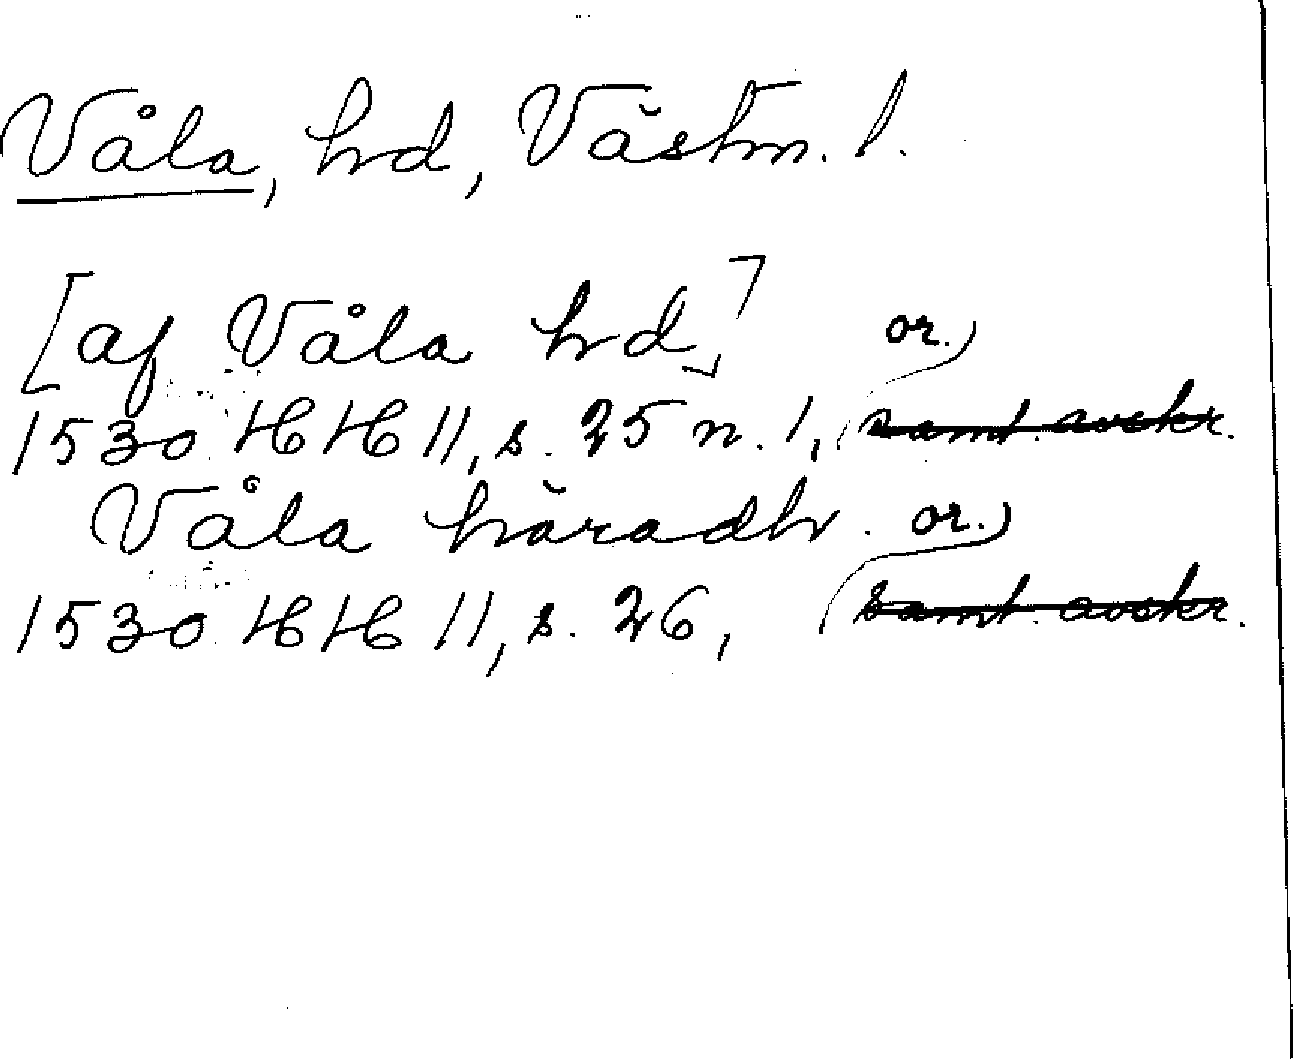 Våla, hd, Västm. l.
[af Våla hd,] or.
1530 HH 11, s. 25 n. 1, samt. avskr.
Våla häradh. or.
1530 HH 11, s. 26, samt. avskr.